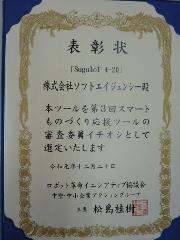 表彰状
「SuguIoT 4-20」
株式会社ソフトエイジェンシー殿
本ツールを第3回スマート
ものづくり応援ツールの
審査委員イチオシとして
選定いたします
令和元年十二月二十日
ロボット革命イニシアティブ協議会
中堅・中小企業アクショングループ
主査 松島桂樹